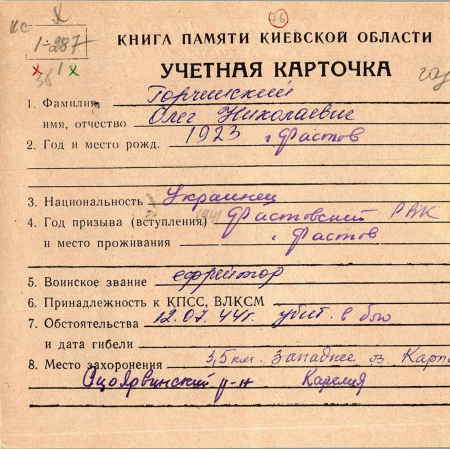 76
1-287
КНИГА ПАМЯТИ КИЕВСКОЙ ОБЛАСТИ
УЧЕТНАЯ КАРТОЧКА
1. Фамилия, Горчинский
имя, отчество Олег Николаевич
2. Год и место рожд. 1923 г. Фастов
3. Национальность Украинец
4. Год призыва (вступления) 1941 Фастовский РВК
и место проживания г. Фастов
5. Воинское звание ефрейтор
6. Принадлежность к КПСС, ВЛКСМ
7. Обстоятельства 12.07.44г. убит в бою
и дата гибели
8. Место захоронения 3,5 км. Западнее оз.
р-н Карелия